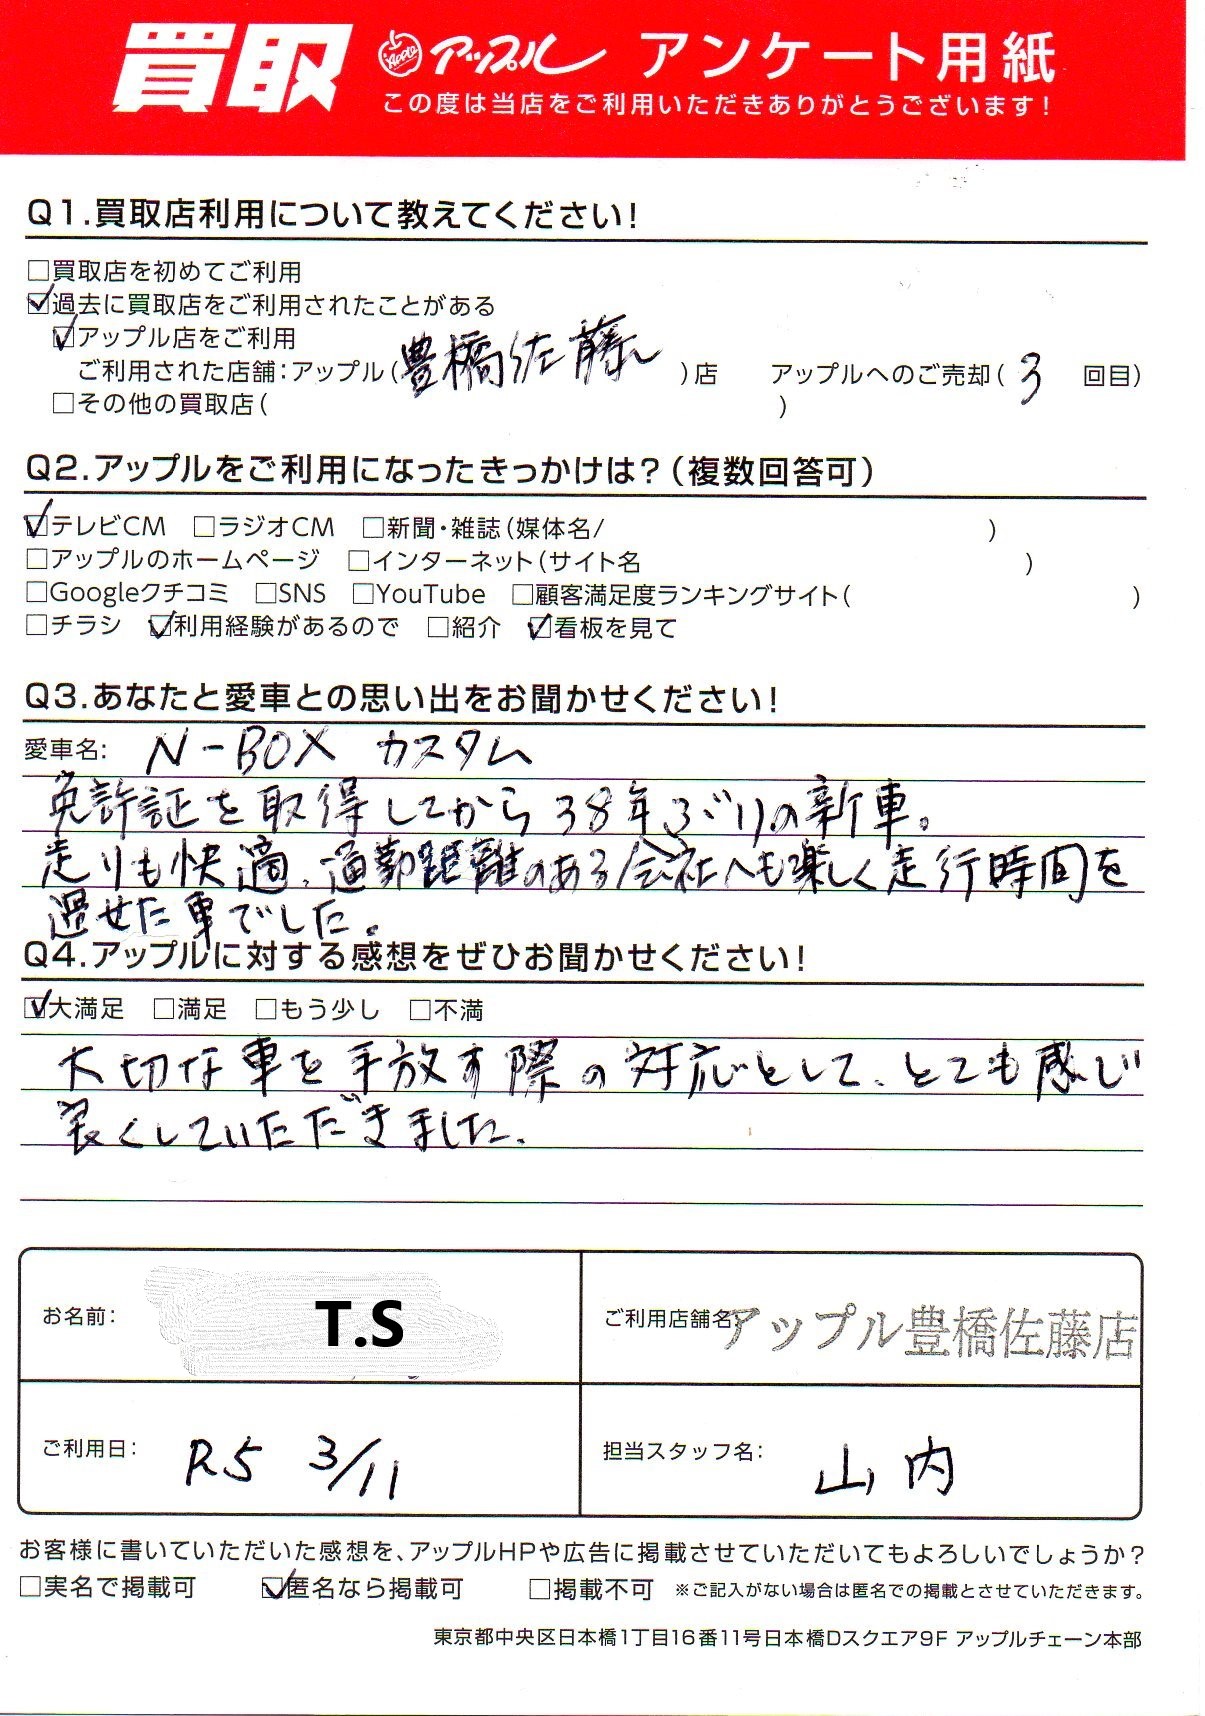 買取 Apple アップル アンケート用紙
この度は当店をご利用いただきありがとうございます!
Q1.買取店利用について教えてください!
□買取店を初めてご利用
☑過去に買取店をご利用されたことがある
☑アップル店をご利用
ご利用された店舗:アップル(豊橋佐藤)店 アップルへのご売却(3 回目)
□その他の買取店( )
Q2.アップルをご利用になったきっかけは?(複数回答可)
☑テレビCM □ラジオCM □新聞・雑誌(媒体名/ )
□アップルのホームページ □インターネット(サイト名 )
□Googleクチコミ □SNS □YouTube □顧客満足度ランキングサイト( )
□チラシ ☑利用経験があるので □紹介 ☑看板を見て
Q3.あなたと愛車との思い出をお聞かせください!
愛車名: N-BOX カスタム
免許証を取得してから38年ぶりの新車。
走りも快適、通勤距離のある会社へも楽しく走行時間を
過せた車でした。
Q4.アップルに対する感想をぜひお聞かせください!
☑大満足 □満足 □もう少し □不満
大切な車を手放す際の対応として、とても感じ
良くしていただきました。
お名前: T.S ご利用店舗名 アップル豊橋佐藤店
ご利用日: R5 3/11 担当スタッフ名: 山内
お客様に書いていただいた感想を、アップルHPや広告に掲載させていただいてもよろしいでしょうか?
□実名で掲載可 ☑匿名なら掲載可 □掲載不可 ※ご記入がない場合は匿名での掲載とさせていただきます。
東京都中央区日本橋1丁目16番11号日本橋Dスクエア9F アップルチェーン本部